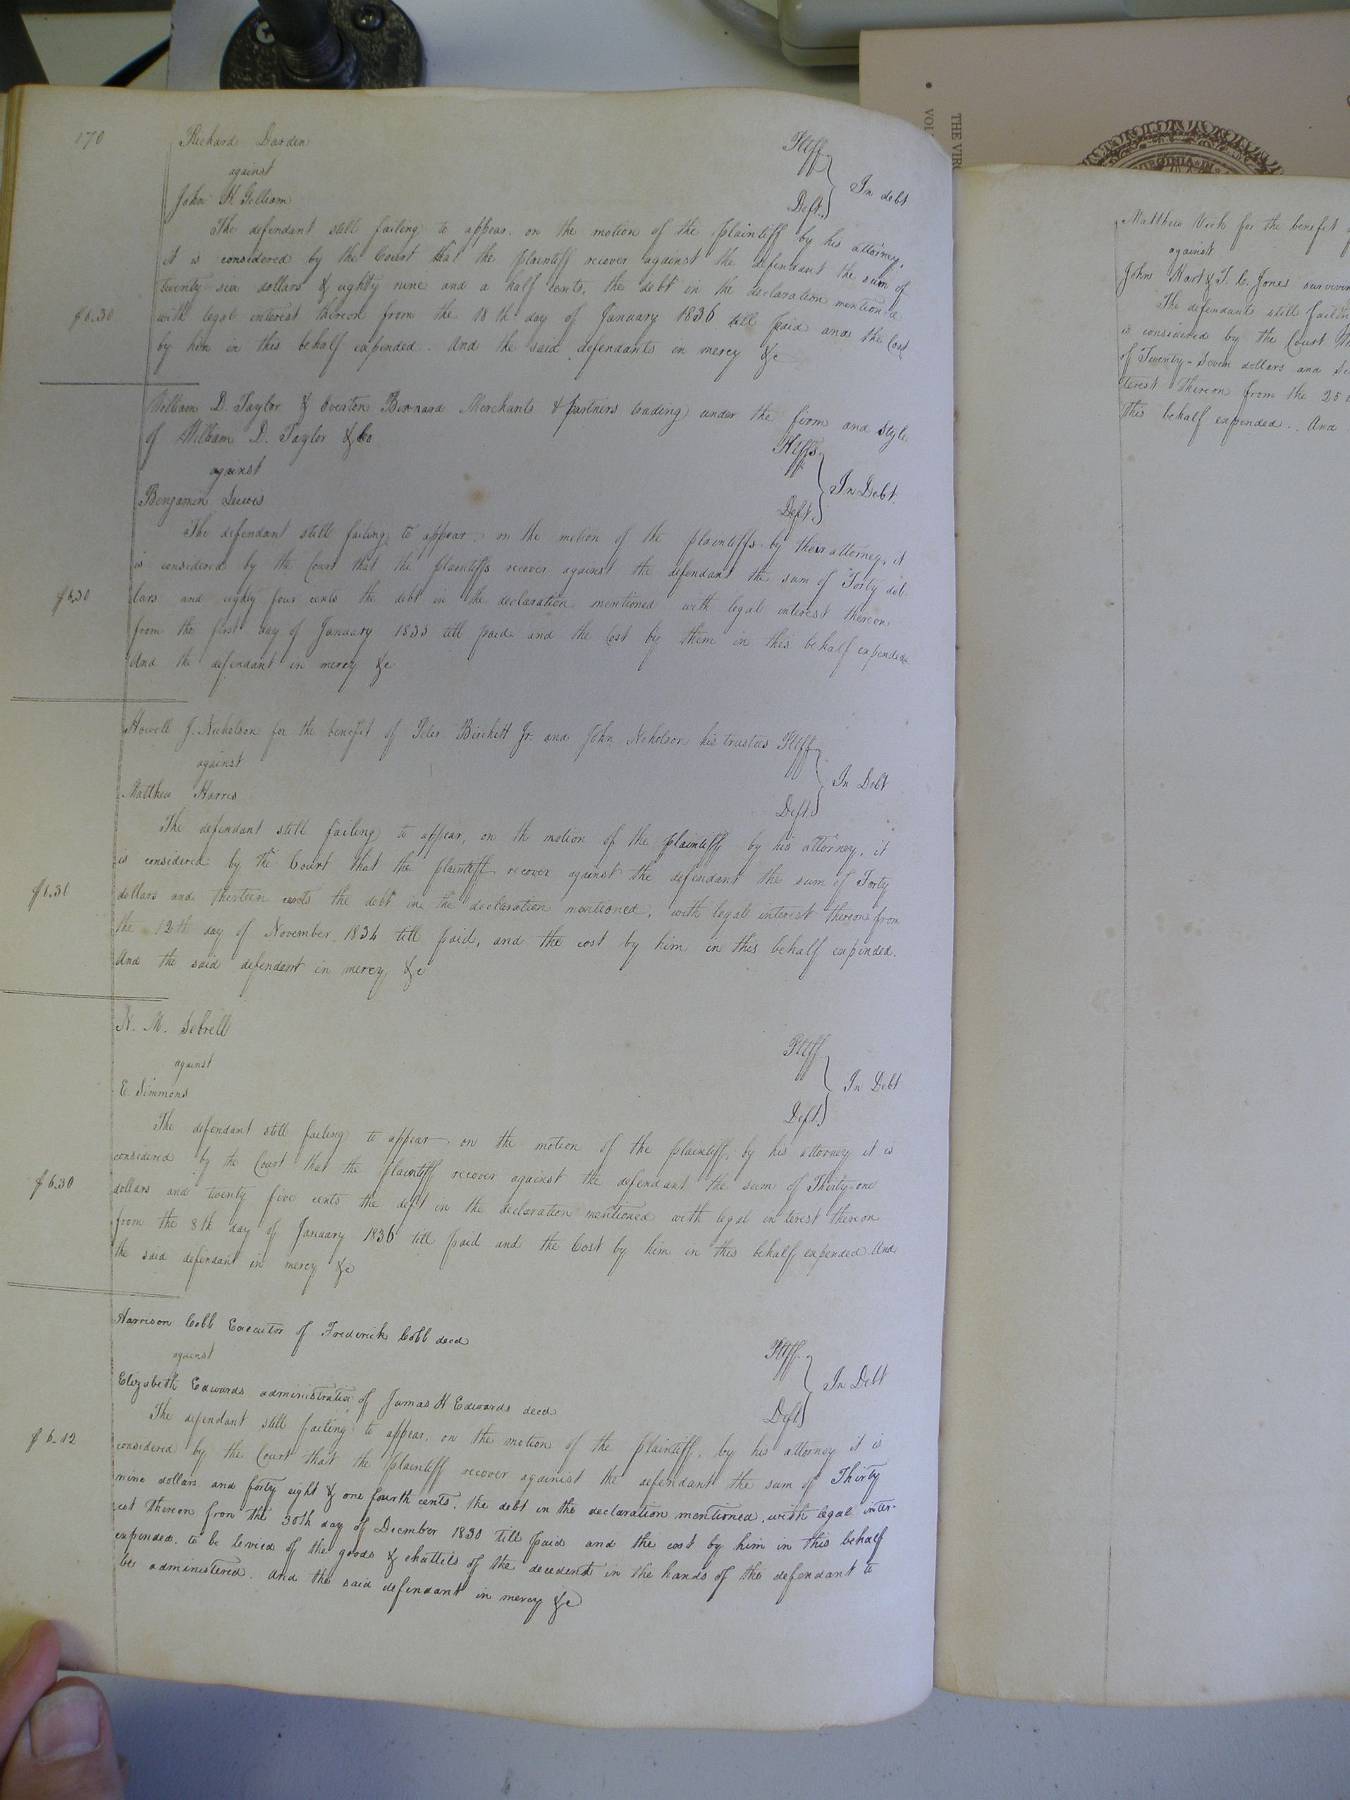 170
Richard Darden Pltff
against
In debt
John H Gilliam Deft.
The defendant still failing to appear. on the motion of the plaintiff by his attorney,
it is considered by the Court that the plaintiff recover against the defendant the sum of
twenty six dollars & eighty nine and a half cents, the debt in the declaration mentioned
$6.30 with legal interest thereon from the 18th day of January 1836 till paid and the Cost
by him in this behalf expended. And the said defendants in mercy &c
William D. Taylor & Overton Bernard Merchants & partners trading under the firm and style
of William D. Taylor & Co Pltffs
against
In Debt.
Benjamin Lewis Deft.
The defendant still failing to appear. on the motion of the plaintiffs by their attorney, it
is considered by the Court that the plaintiffs recover against the defendant the sum of Forty dol-
$6.30 lars and eighty four cents the debt in the declaration mentioned with legal interest thereon
from the first day of January 1835 till paid and the Cost by them in this behalf expended
And the defendant in mercy &c
Howell J. Nicholson for the benefit of Peter Birchett Jr. and John Nicholson his trustees Pltff
against
In Debt
Matthew Harris Deft.
The defendant still failing to appear, on the motion of the plaintiff by his attorney, it
is considered by the Court that the plaintiff recover against the defendant the sum of Forty
$6.31 dollars and thirteen cents the debt in the declaration mentioned, with legal interest thereon from
the 12th day of November 1834 till paid, and the cost by him in this behalf expended.
And the said defendant in mercy &c
N. M. Sebrell Pltff
against
In Debt
E. Simmons Deft.
The defendant still failing to appear on the motion of the plaintiff, by his attorney it is
considered by the Court that the plaintiff recover against the defendant the sum of Thirty-one
$6.30 dollars and twenty five cents the debt in the declaration mentioned with legal interest thereon
from the 8th day of January 1836 till paid and the Cost by him in this behalf expended And
the said defendant in mercy &c
Harrison Cobb Executor of Frederick Cobb decd Pltff.
against
In Debt
Elizabeth Edwards administratrix of James H Edwards decd Deft
The defendant still failing to appear. on the motion of the plaintiff. by his attorney it is
$6.12 considered by the Court that the plaintiff recover against the defendant the sum of Thirty
nine dollars and forty eight & one fourth cents. the debt in the declaration mentioned, with legal inter-
est thereon from the 30th day of December 1830 till paid and the cost by him in this behalf
expended. to be levied of the goods & chattels of the decedent in the hands of the defendant to
be administered. And the said defendant in mercy &c
Matthew Vick for the benefit
against
John Hart & T. C. Jones survivin
The defendants still failin
is considered by the Court
of Twenty-Seven dollars and
terest thereon from the 25
this behalf expended.. And
THE VIR
VOL
VIRGINIA IN